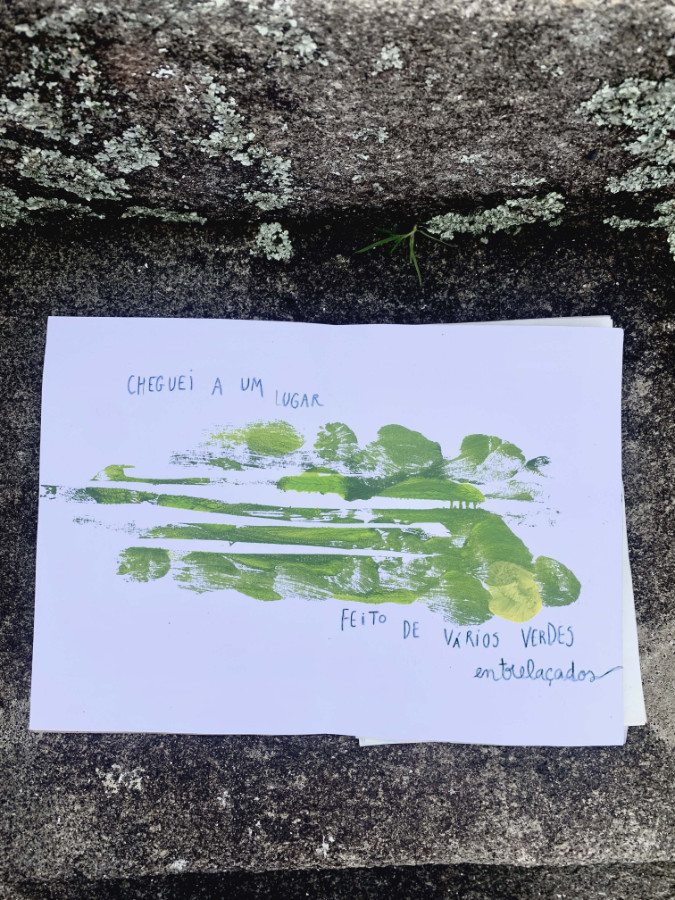 CHEGUEI A UM LUGAR
FEITO DE VÁRIOS VERDES
entrelaçados